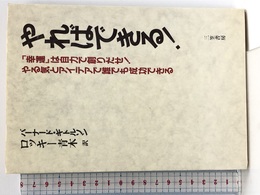 やればできる!
「幸運」は自力で創りだせ!
やる気とアイデアで誰でも成功できる
バーナード・ギトルソン
ロッキー青木 訳
三笠書房